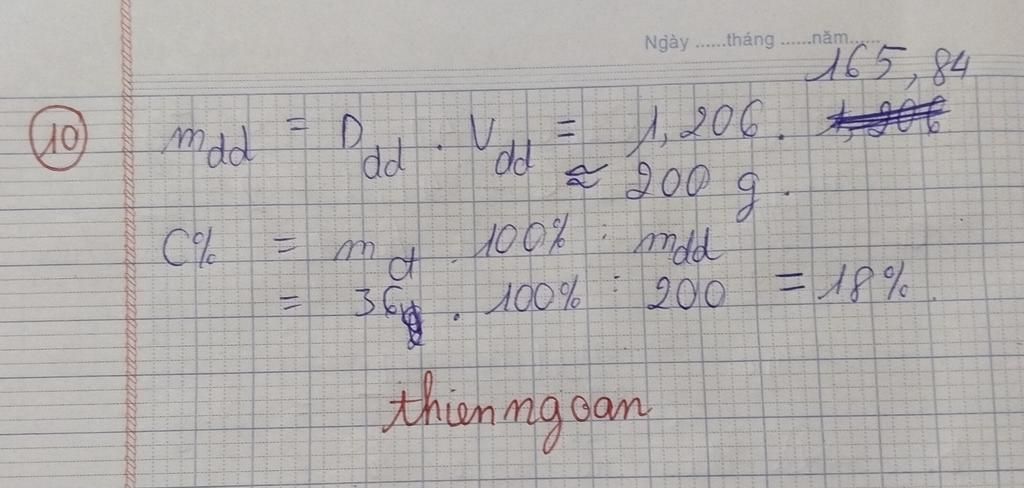 Ngày ......tháng ......năm......
165,84
10 mdd = Ddd . Vdd = 1,206 .
≈ 200 g .
C% = mct . 100% : mdd
= 36 . 100% : 200 = 18% .
thienngoan